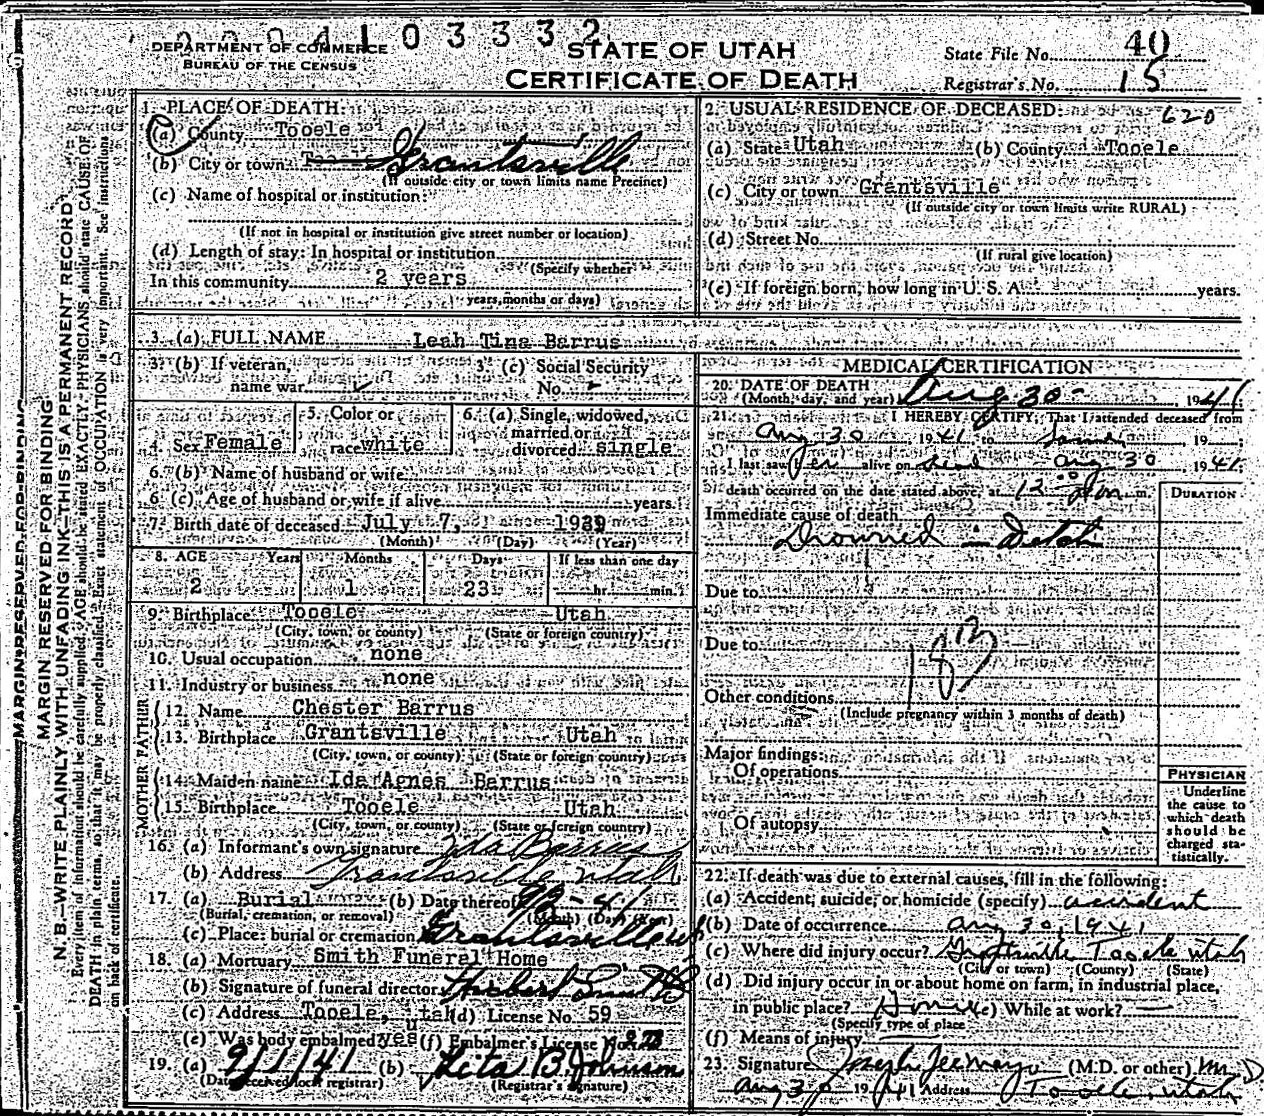 0004103332
DEPARTMENT OF COMMERCE
BUREAU OF THE CENSUS
STATE OF UTAH
CERTIFICATE OF DEATH
State File No. 40
Registrar's No. 15
MARGIN RESERVED FOR BINDING
MARGIN RESERVED FOR BINDING
N. B.—WRITE PLAINLY WITH UNFADING INK—THIS IS A PERMANENT RECORD
Every item of information should be carefully supplied. AGE should be stated EXACTLY. PHYSICIANS should state CAUSE OF
DEATH in plain terms, so that it may be properly classified. Exact statement of OCCUPATION is very important. See instructions
on back of certificate.
1. PLACE OF DEATH:
(a) County Tooele
(b) City or town Grantsville
(If outside city or town limits name Precinct)
(c) Name of hospital or institution:
(If not in hospital or institution give street number or location)
(d) Length of stay: In hospital or institution
(Specify whether
In this community 2 years
years, months or days)
2. USUAL RESIDENCE OF DECEASED: 620
(a) State Utah (b) County Tooele
(c) City or town Grantsville
(If outside city or town limits write RURAL)
(d) Street No.
(If rural give location)
(e) If foreign born, how long in U. S. A. years.
3. (a) FULL NAME Leah Tina Barrus
3. (b) If veteran, name war 3. (c) Social Security No. -
4. Sex Female 5. Color or race white 6. (a) Single, widowed, married or divorced single
6. (b) Name of husband or wife
6 (c). Age of husband or wife if alive years.
7. Birth date of deceased July 7, 1939
(Month) (Day) (Year)
8. AGE Years Months Days If less than one day
2 1 23 hr. min.
9. Birthplace Tooele Utah
(City, town, or county) (State or foreign country)
10. Usual occupation none
11. Industry or business none
FATHER
12. Name Chester Barrus
13. Birthplace Grantsville Utah
(City, town, or county) (State or foreign country)
MOTHER
14. Maiden name Ida Agnes Barrus
15. Birthplace Tooele Utah
(City, town, or county) (State or foreign country)
16. (a) Informant's own signature Ida Barrus
(b) Address Grantsville Utah
17. (a) Burial (b) Date thereof
(Burial, cremation, or removal) (Month) (Day) (Year)
(c) Place: burial or cremation Grantsville
18. (a) Mortuary Smith Funeral Home
(b) Signature of funeral director
(c) Address Tooele, Utah (d) License No. 59
(e) Was body embalmed? yes (f) Embalmer's License No.
19. (a) 9/1/41 (b) Rita B. Johnson
(Date received local registrar) (Registrar's signature)
MEDICAL CERTIFICATION
20. DATE OF DEATH Aug 30 - , 1941
(Month, day, and year)
21. I HEREBY CERTIFY, That I attended deceased from
Aug 30 1941 to same , 19 ;
I last saw her alive on dead Aug 30 1941
death occurred on the date stated above, at 12 m.
DURATION
Immediate cause of death
Drowned - Ditch
Due to
Due to
183
Other conditions
(Include pregnancy within 3 months of death)
Major findings:
Of operations
Of autopsy
PHYSICIAN
Underline
the cause to
which death
should be
charged sta-
tistically.
22. If death was due to external causes, fill in the following:
(a) Accident, suicide, or homicide (specify) accident
(b) Date of occurrence Aug 30, 1941
(c) Where did injury occur? Grantsville Tooele Utah
(City or town) (County) (State)
(d) Did injury occur in or about home on farm, in industrial place,
in public place? Home (e) While at work? —
(Specify type of place
(f) Means of injury
23. Signature Joseph (M.D. or other) M.D
Aug 30 1941 Address Tooele, Utah